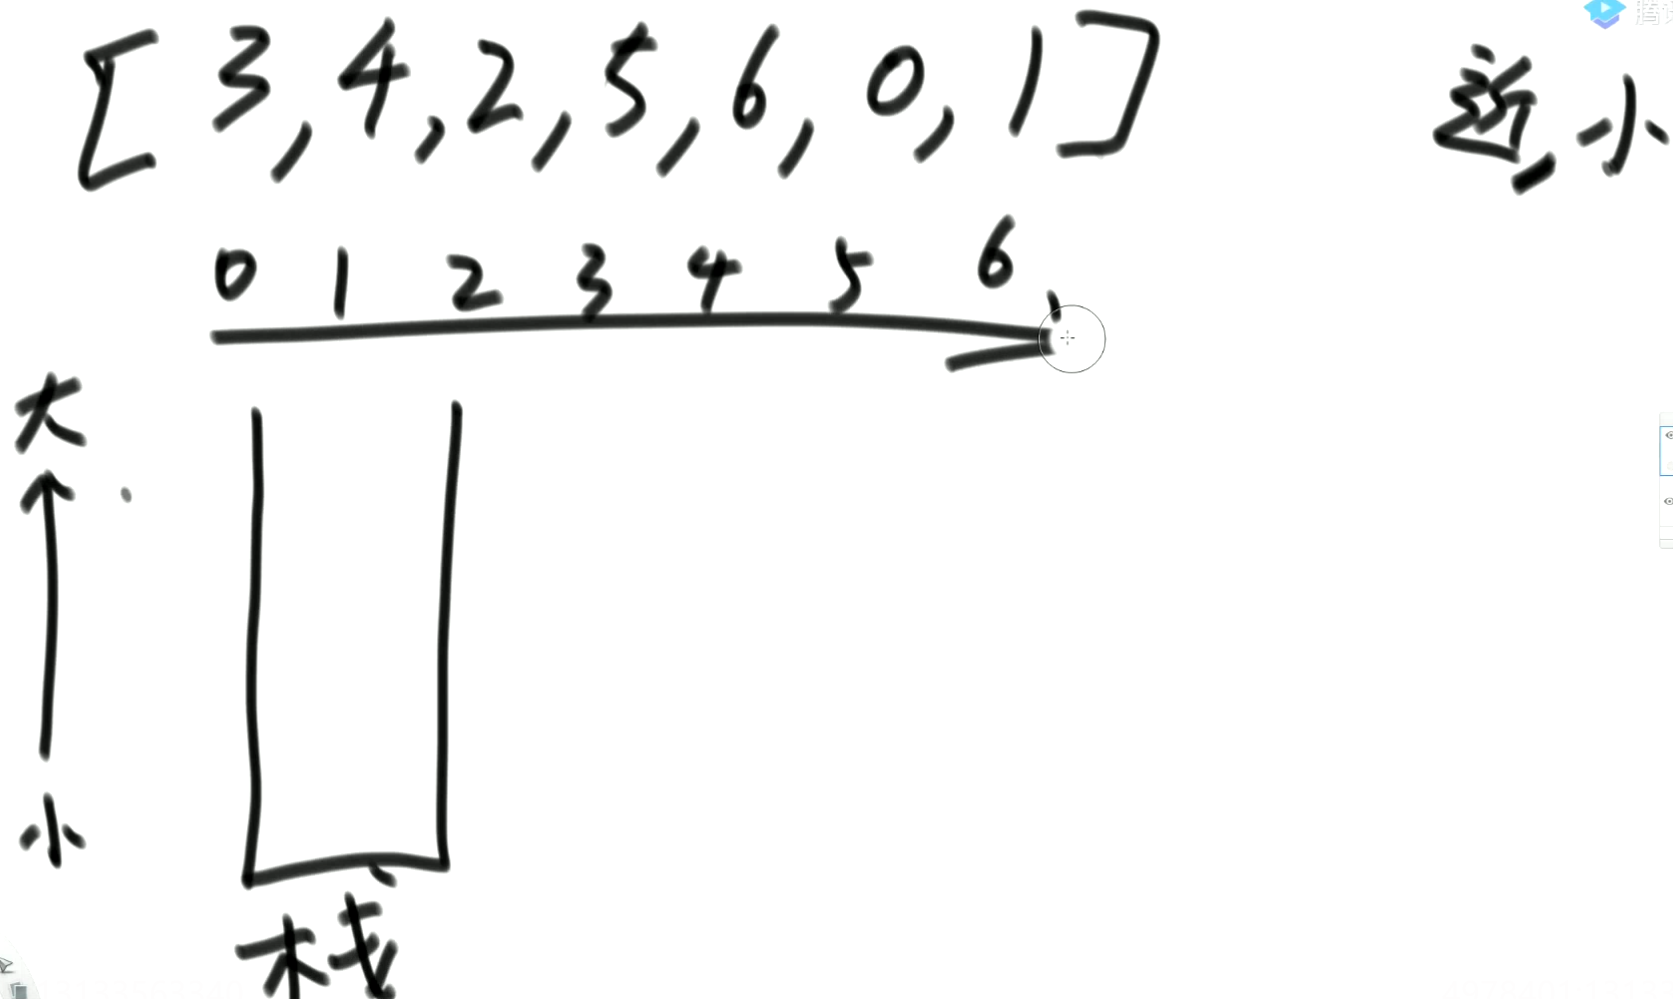 [3,4,2,5,6,0,1]
近,小
0 1 2 3 4 5 6
大
小
栈